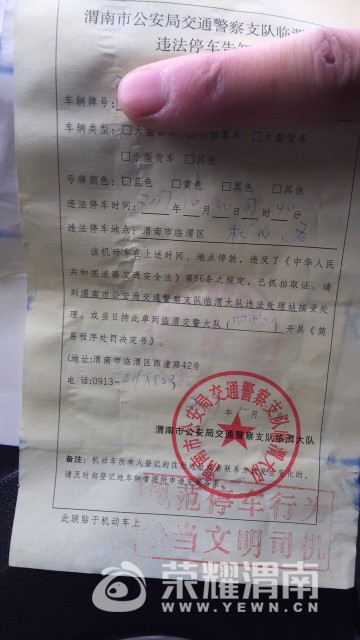 渭南市公安局交通警察支队临渭
违法停车告知
车辆牌号:
车辆类型: □大型客车 □小型客车 □大型货车
□小型货车 □其他
号牌颜色: □蓝色 □黄色 □黑色 □其他
违法停车时间: 2017年10月30日 时40分
违法停车地点: 渭南市临渭区
该机动车在上述时间、地点停放,违反了《中华人民
共和国道路交通安全法》第56条之规定,已抓拍取证。请
到渭南市公安局交通警察支队临渭大队违法处理站接受处
理。或当日持此单到临渭交警大队( )开具《简
易程序处罚决定书》。
(地址:渭南市临渭区西潼路42号
电 话:0913-
渭南市公安局交通警察支队临渭大队
备注: 机动车所有人登记的住址或者联系方式发生变化的,
请及时向登记地车辆管理所申请变更备案。
规范停车行为
争当文明司机
此联贴于机动车上
荣耀渭南
WWW.YEWN.CN